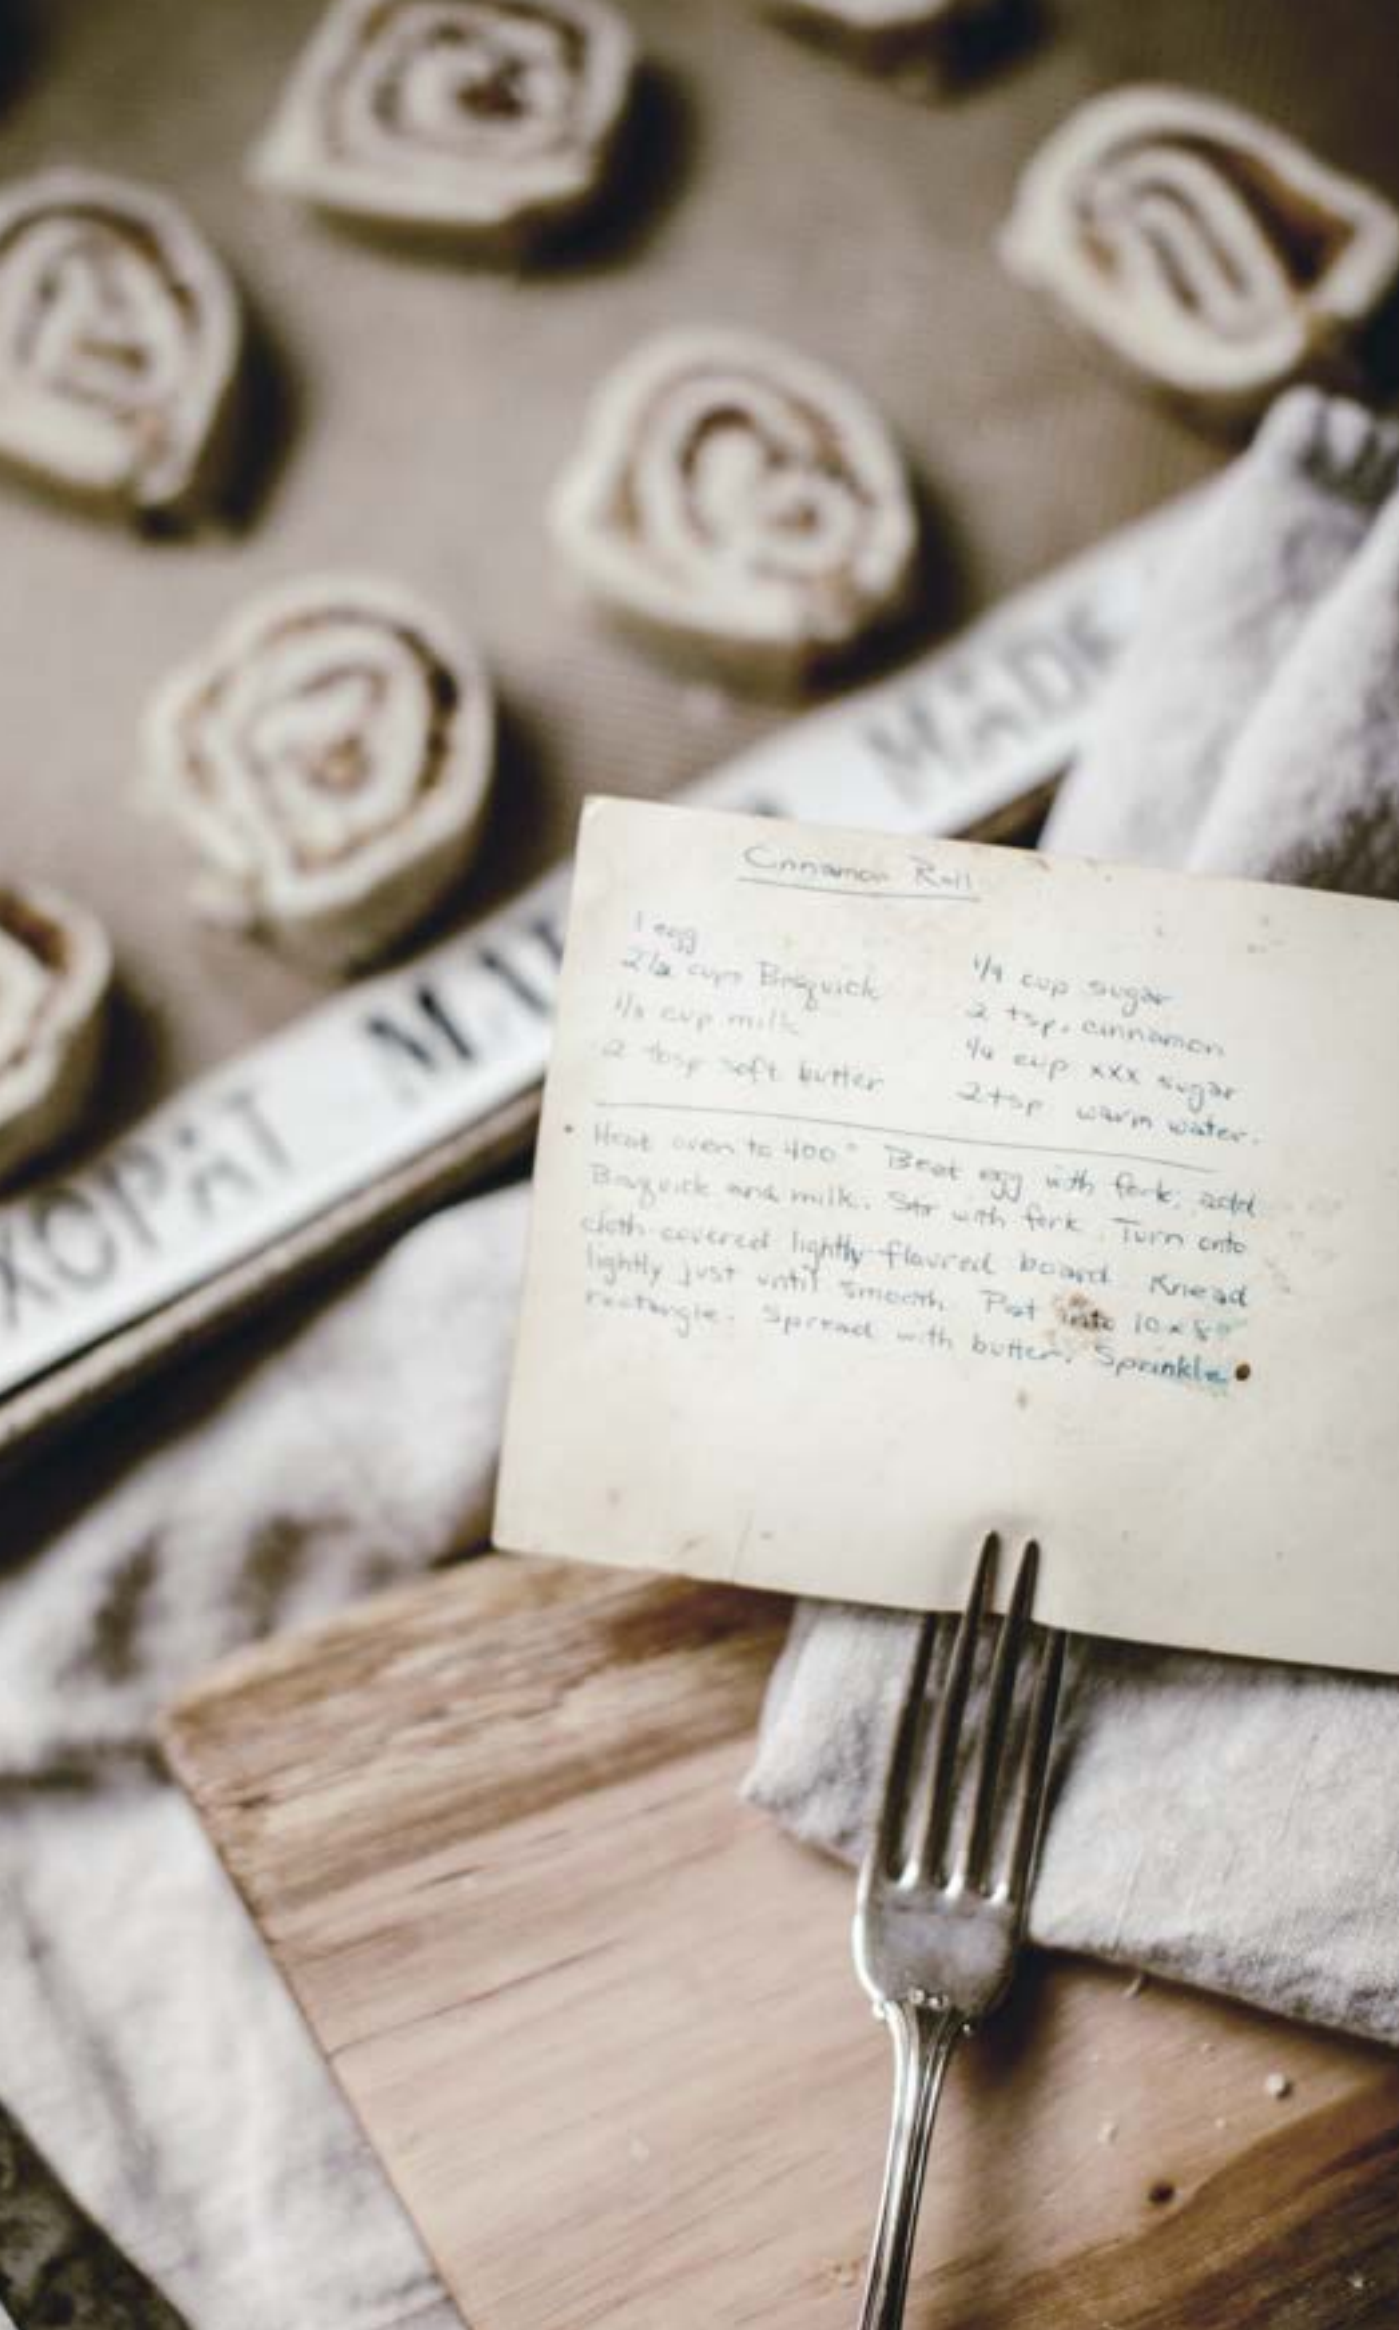 Cnnamon Roll
1 egg
2 1/2 cups Bisquick
1/3 cup milk
2 tbsp soft butter
1/4 cup sugar
2 tsp. cinnamon
1/4 cup xxx sugar
2 tsp warm water.
• Heat oven to 400° Beat egg with fork, add
Bisquick and milk. Stir with fork. Turn onto
cloth-covered lightly-floured board. Knead
lightly just until smooth. Pat into 10 x 8"
rectangle. Spread with butter. Sprinkle
XOPAT
MADE